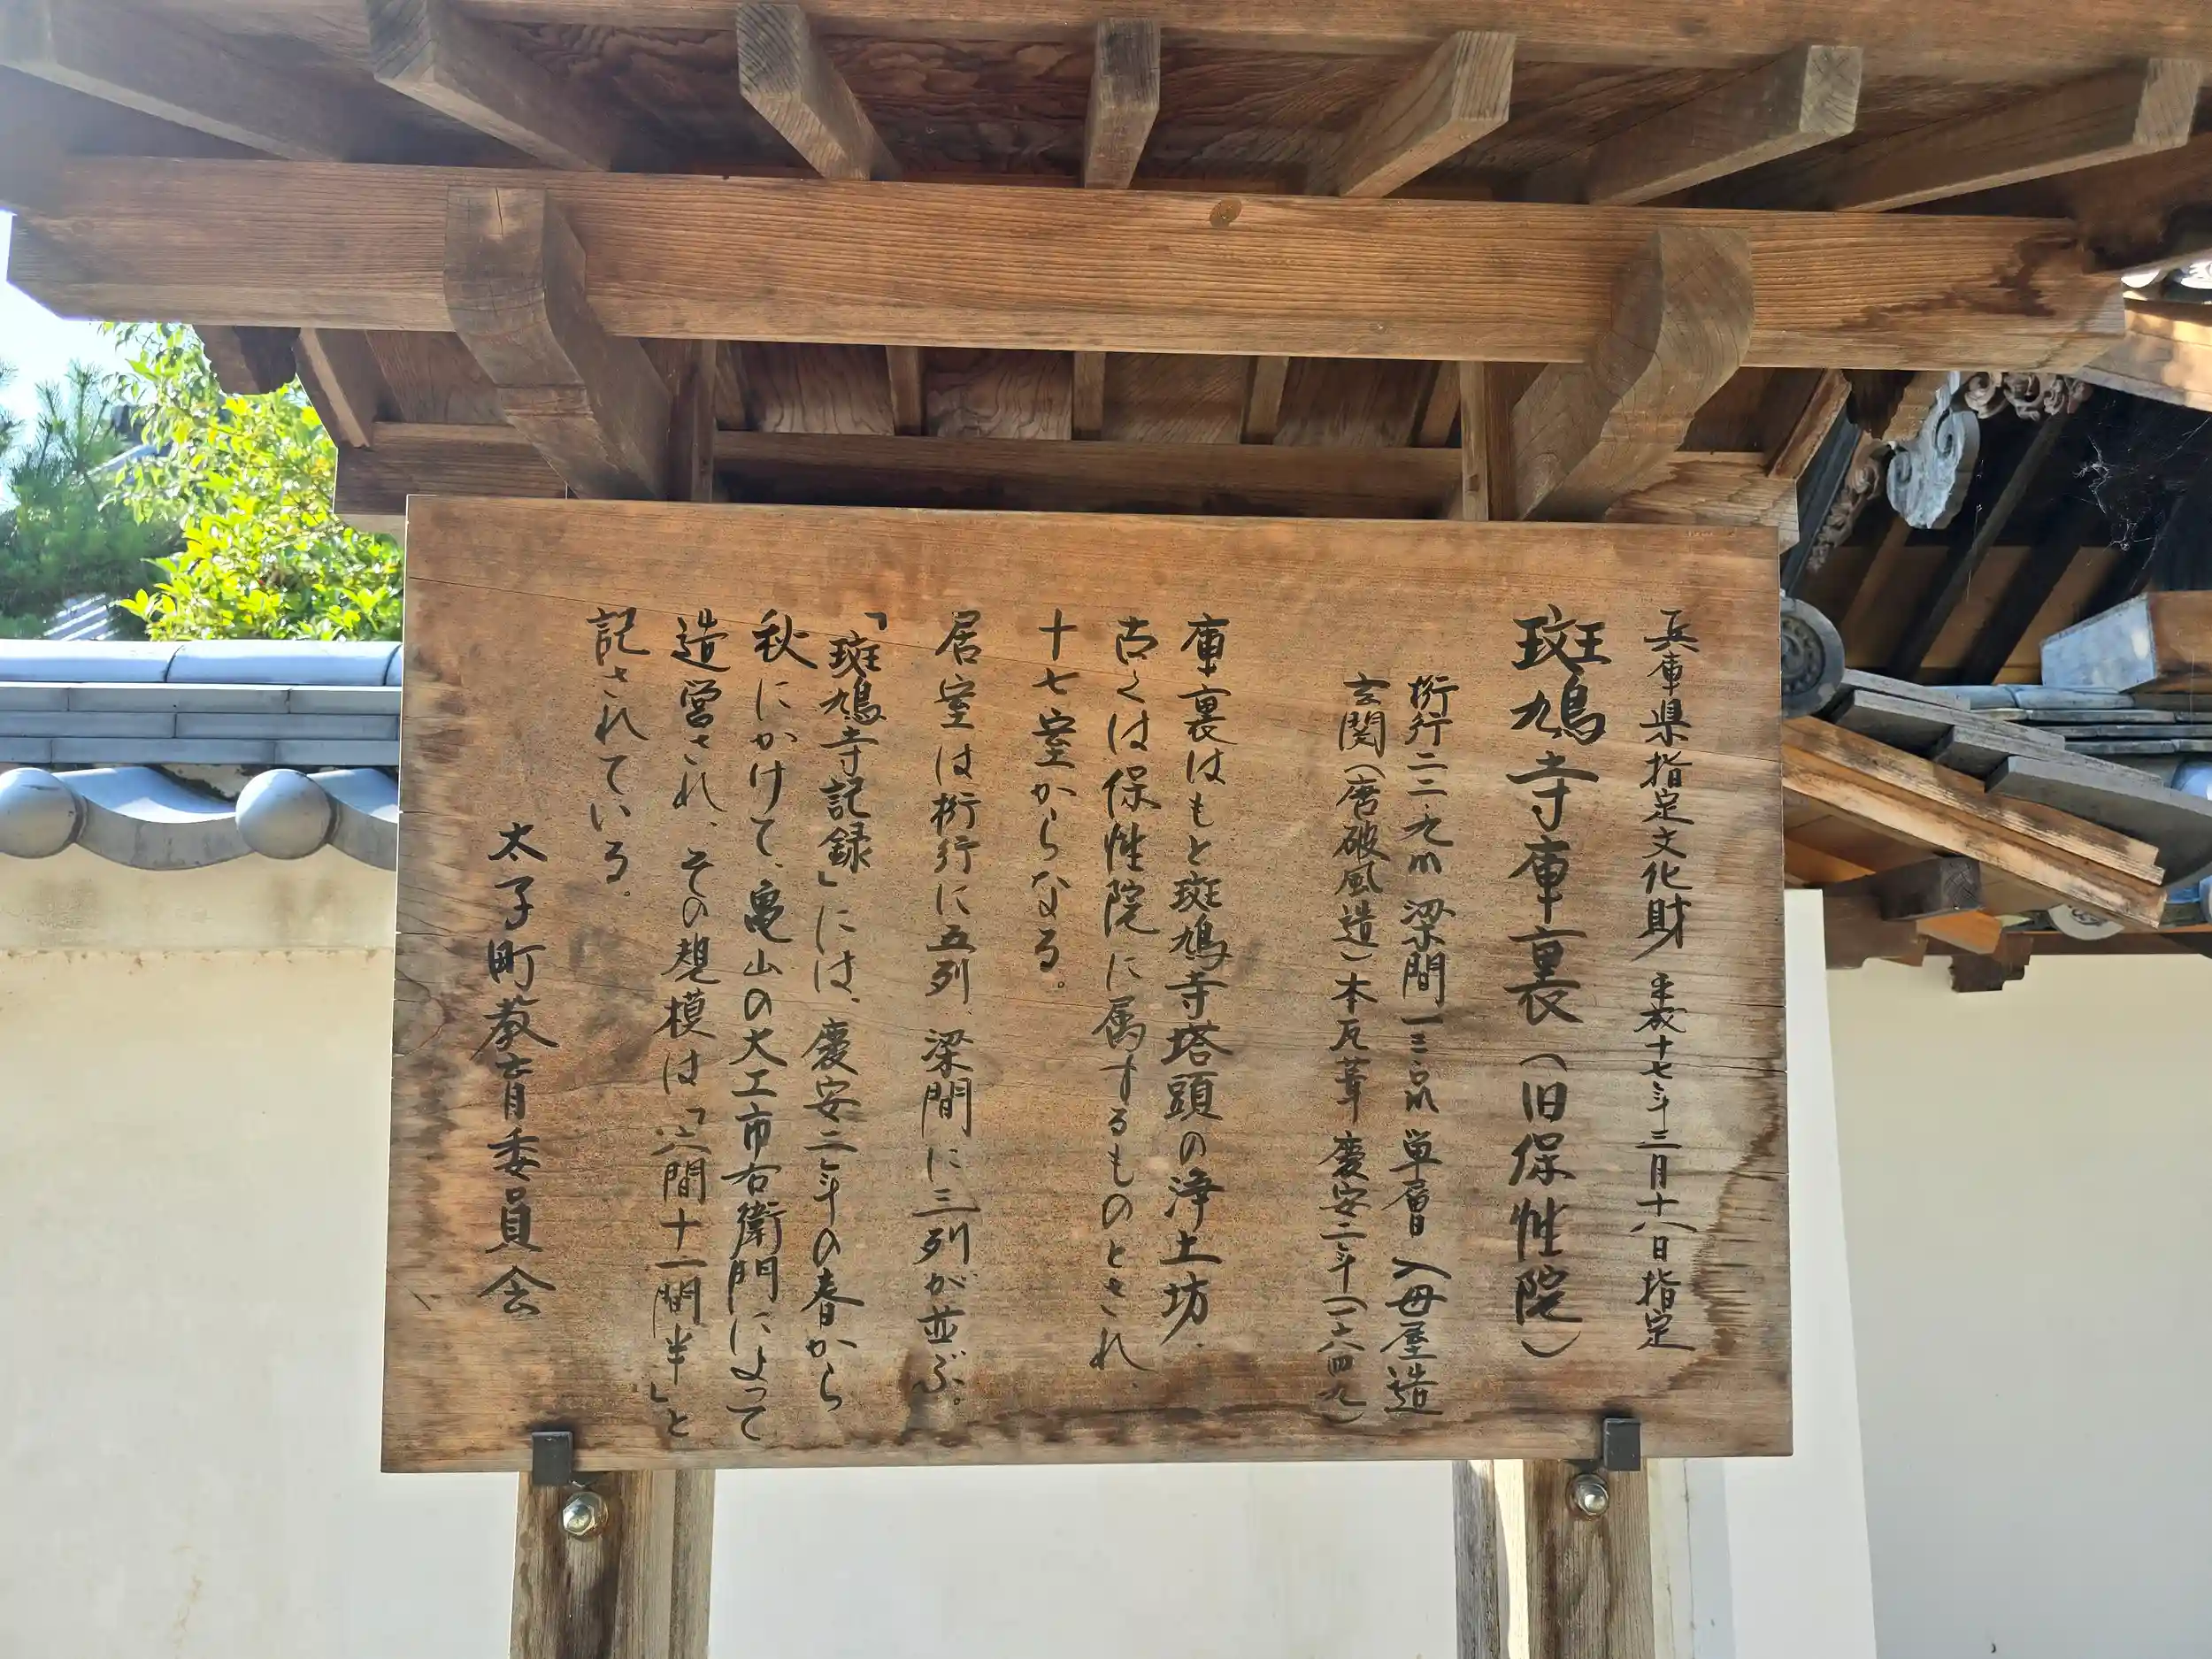 兵庫県指定文化財 平成十七年三月十八日指定
斑鳩寺庫裏（旧保性院）
桁行二二、九m 梁間一三、〇m 単層 入母屋造
玄関（唐破風造）本瓦葺 慶安二年（一六四九）
庫裏はもと斑鳩寺塔頭の浄土坊、
古くは保性院に属するものとされ、
十七室からなる。
居室は桁行に五列、梁間に三列が並ぶ。
「斑鳩寺記録」には、慶安二年の春から
秋にかけて、亀山の大工市右衛門によって
造営され、その規模は「六間十一間半」と
記されている。
太子町教育委員会